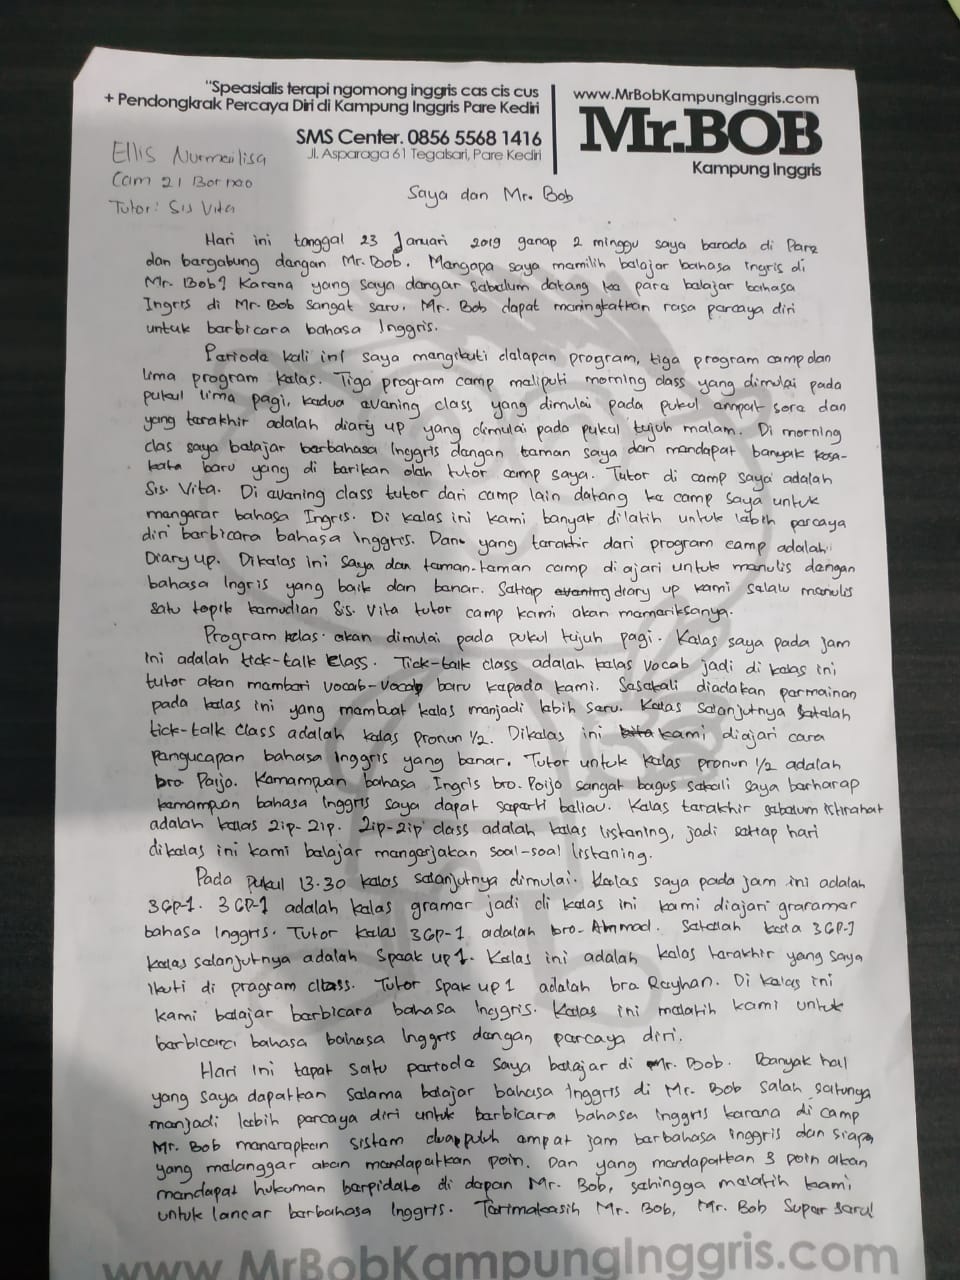 "Speasialis terapi ngomong inggris cas cis cus
+ Pendongkrak Percaya Diri di Kampung Inggris Pare Kediri
SMS Center. 0856 5568 1416
Jl. Asparaga 61 Tegalsari, Pare Kediri
www.MrBobKampungInggris.com
Mr.BOB
Kampung Inggris
Ellis Nurmailisa
Cam 21 Borneo
Tutor: Sis Vita
Saya dan Mr. Bob
Hari ini tanggal 23 Januari 2019 genap 2 minggu saya berada di Pare
dan bergabung dengan Mr. Bob. Mengapa saya memilih belajar bahasa Ingris di
Mr. Bob? Karena yang saya dengar sebelum datang ke pare belajar bahasa
Ingris di Mr. Bob sangat seru. Mr. Bob dapat meningkatkan rasa percaya diri
untuk berbicara bahasa Inggris.
Periode kali ini saya mengikuti delapan program, tiga program camp dan
lima program kelas. Tiga program camp meliputi morning class yang dimulai pada
pukul lima pagi, kedua evening class yang dimulai pada pukul empat sore dan
yang terakhir adalah diary up yang dimulai pada pukul tujuh malam. Di morning
clas saya belajar berbahasa Inggris dengan teman saya dan mendapat banyak kosa-
kata baru yang di berikan oleh tutor camp saya. Tutor di camp saya adalah
Sis. Vita. Di evening class tutor dari camp lain datang ke camp saya untuk
mengarar bahasa Ingris. Di kelas ini kami banyak dilatih untuk lebih percaya
diri berbicara bahasa Inggris. Dan yang terakhir dari program camp adalah
Diary up. Dikelas ini saya dan teman-teman camp di ajari untuk menulis dengan
bahasa Ingris yang baik dan benar. Setiap evening diary up kami selalu menulis
satu topik kemudian Sis. Vita tutor camp kami akan memeriksanya.
Program kelas akan dimulai pada pukul tujuh pagi. Kelas saya pada jam
ini adalah tick-talk class. Tick-talk class adalah kelas vocab jadi di kelas ini
tutor akan memberi vocab-vocab baru kepada kami. Sesekali diadakan permainan
pada kelas ini yang membuat kelas menjadi lebih seru. Kelas selanjutnya setelah
tick-talk class adalah kelas pronun 1/2. Dikelas ini kita kami diajari cara
pengucapan bahasa Inggris yang benar. Tutor untuk kelas pronun 1/2 adalah
bro Paijo. Kemampuan bahasa Ingris bro. Poijo sangat bagus sekali saya berharap
kemampuan bahasa Inggris saya dapat seperti beliau. Kelas terakhir sebelum istirahat
adalah kelas zip-zip. Zip-zip class adalah kelas listening, jadi setiap hari
dikelas ini kami belajar mengerjakan soal-soal listening.
Pada pukul 13.30 kelas selanjutnya dimulai. Kelas saya pada jam ini adalah
3GP-1. 3 GP-1 adalah kelas gramar jadi di kelas ini kami diajari graramar
bahasa Inggris. Tutor kelas 3GP-1 adalah bro- Ahmad. Setelah kela 3GP-1
kelas selanjutnya adalah Speak up 1. Kelas ini adalah kelas terakhir yang saya
ikuti di program class. Tutor Spak up 1 adalah bro Rayhan. Di kelas ini
kami belajar berbicara bahasa Inggris. Kelas ini melatih kami untuk
berbicara bahasa bahasa Inggris dengan percaya diri.
Hari ini tepat satu periode saya belajar di Mr. Bob. Banyak hal
yang saya dapatkan selama belajar bahasa Inggris di Mr. Bob salah satunya
menjadi lebih percaya diri untuk berbicara bahasa Inggris karena di camp
Mr. Bob menerapkan sistem duapuluh empat jam berbahasa inggris dan siapa
yang melanggar akan mendapatkan poin. Dan yang mendapatkan 3 poin akan
mendapat hukuman berpidato di depan Mr. Bob, sehingga melatih kami
untuk lancar berbahasa Inggris. Terimakasih Mr. Bob, Mr. Bob Super seru!
www.MrBobKampungInggris.com